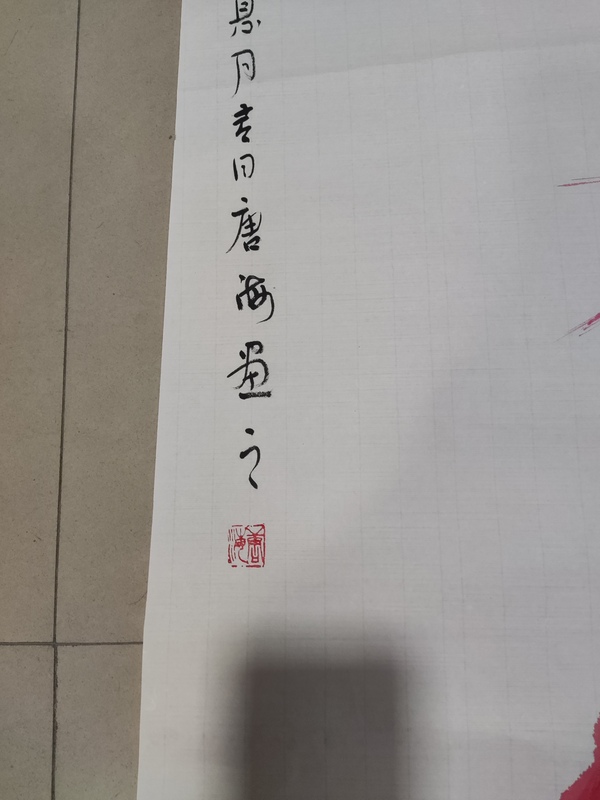 月吉日唐海画之
唐海